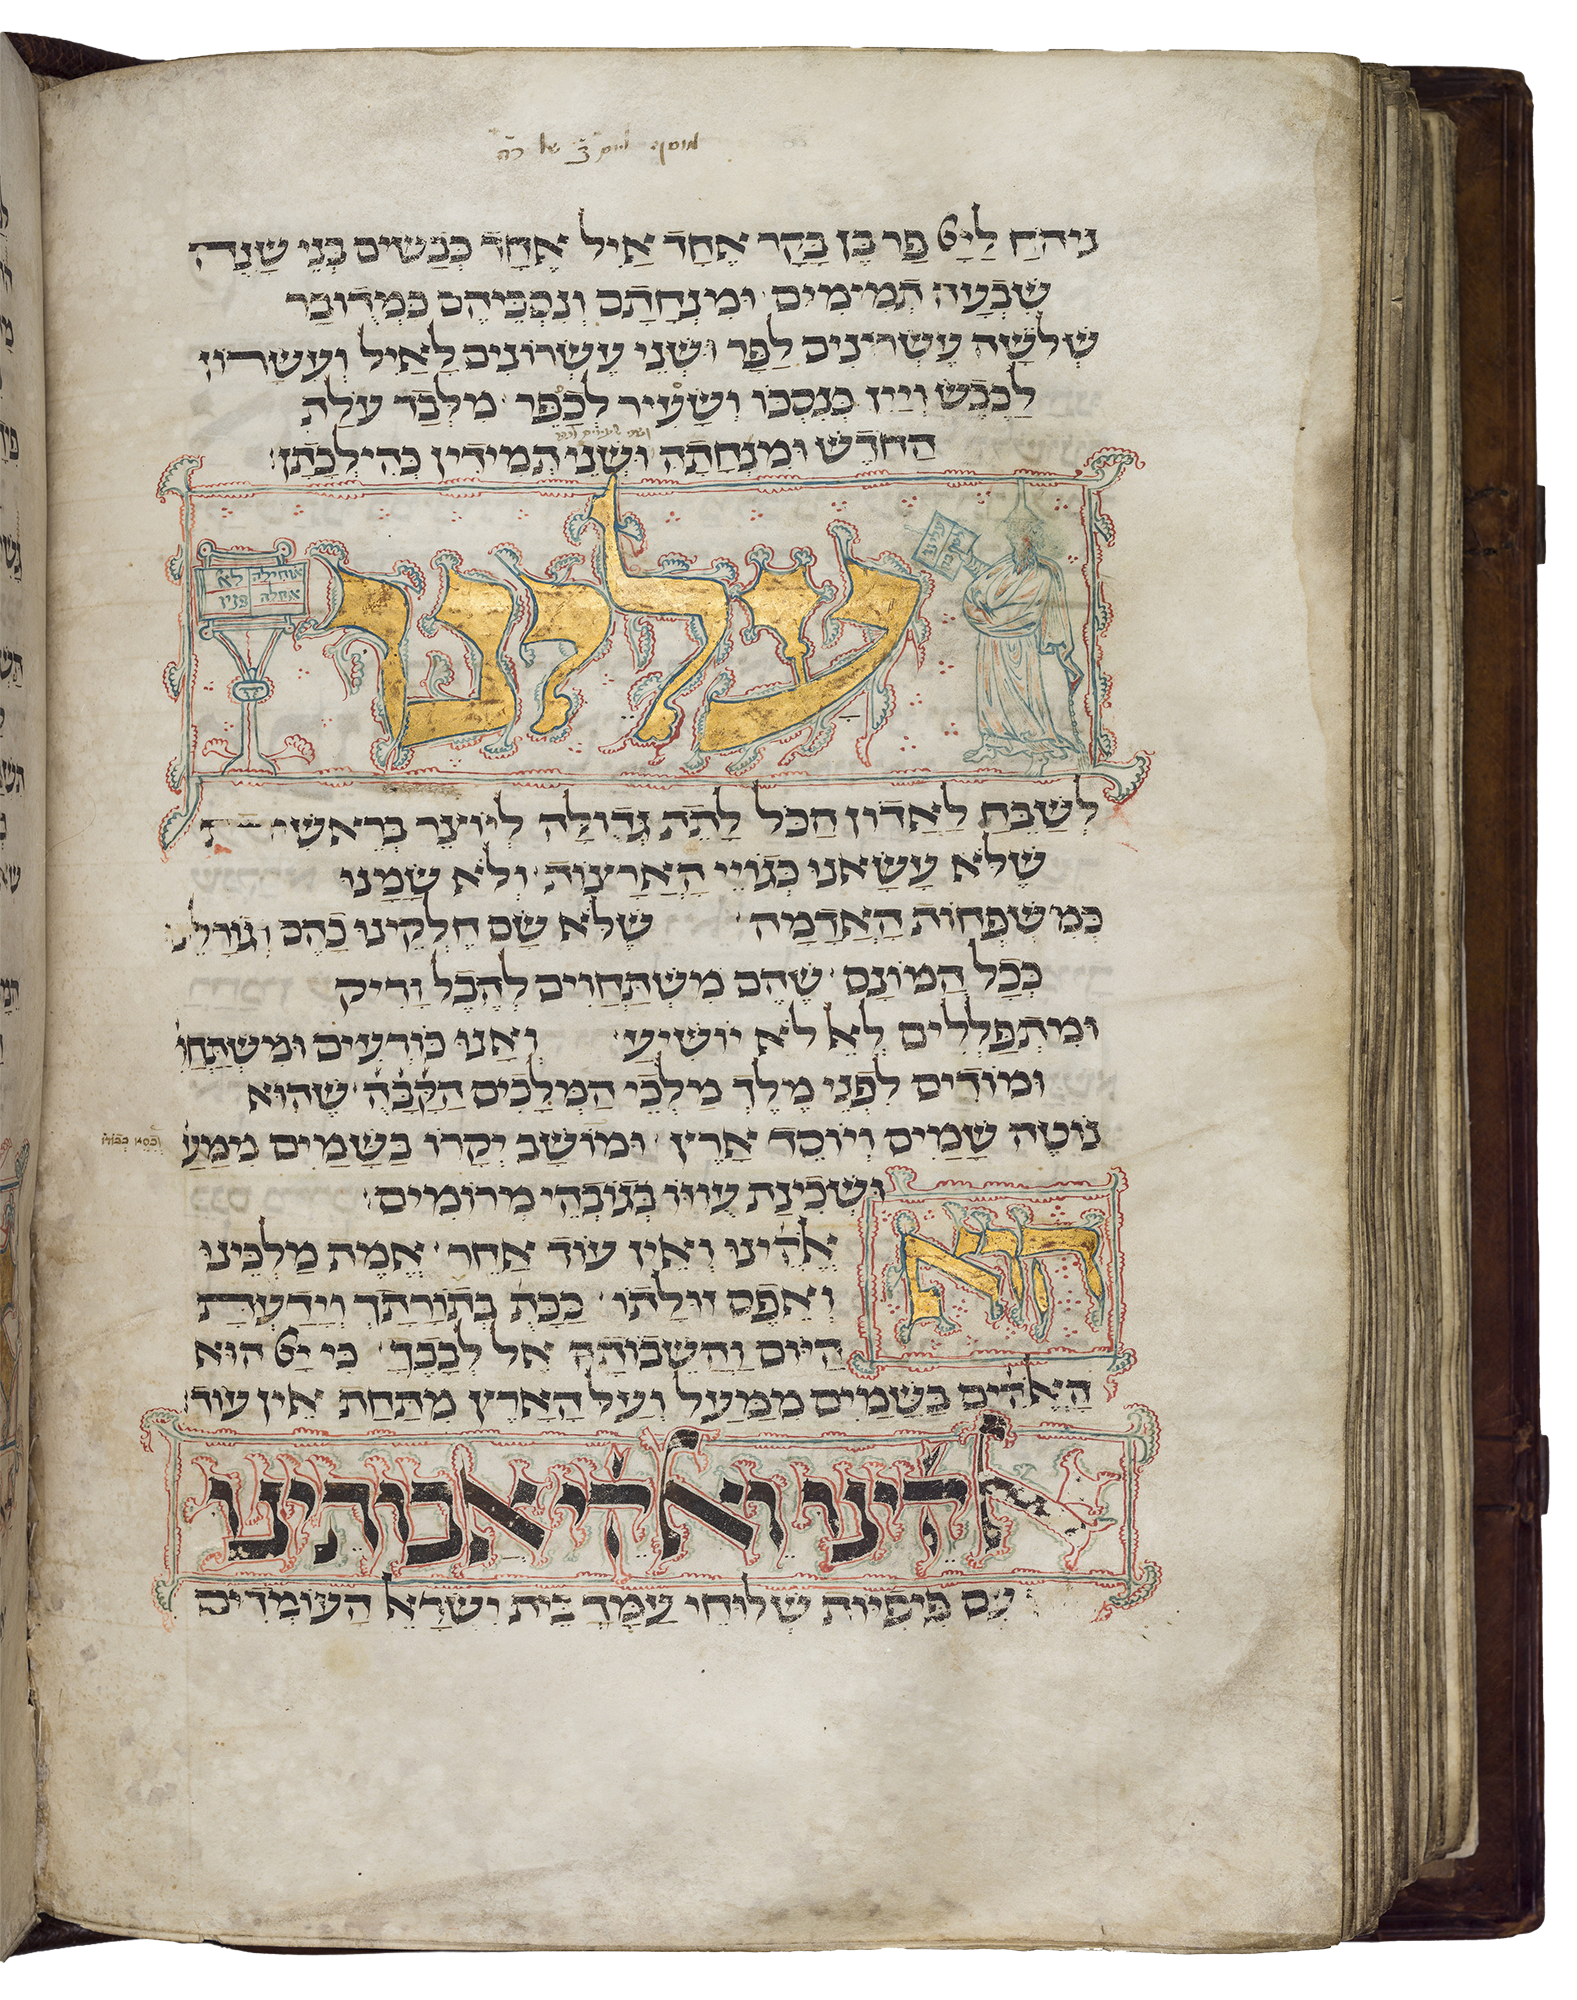 מוסף ליום ב׳ של ר״ה
ניחח ליי פר בן בקר אחד איל אחד כבשים בני שנה
שבעה תמימים׳ ומנחתם ונסכיהם כמדובר
שלשה עשרונים לפר ושני עשרונים לאיל ועשרון
לכבש ויין כנסכו ושעיר לכפר׳ מלבד עלת
החדש ומנחתה ושני תמידין כהילכתן׃
עלינו
אוחילה לא
אחלה פניו
לשבח לאדון הכל לתת גדולה ליוצר בראשית
שלא עשאנו כגויי הארצות׳ ולא שמנו
כמשפחות האדמה׳ שלא שם חלקינו כהם וגורלנו
ככל המונם׳ שהם משתחוים להבל וריק
ומתפללים לאל לא יושיע׳ ואנו כורעים ומשתחוי
ומודים לפני מלך מלכי המלכים הקבה׳ שהוא
נוטה שמים ויוסד ארץ׳ ומושב יקרו בשמים ממעל
וכסא כבודו
ושכינת עוזו בגובהי מרומים׳
הוא
אלהינו ואין עוד אחר׳ אמת מלכינו
ואפס זולתו׳ ככת׳ בתורתך וידעת
היום והשבות אל לבבך׳ כי יי הוא
האלהים בשמים ממעל ועל הארץ מתחת אין עוד׃
אלהינו ואלהי אבותינו
עם פיפיות שלוחי עמך בית ישראל העומדים